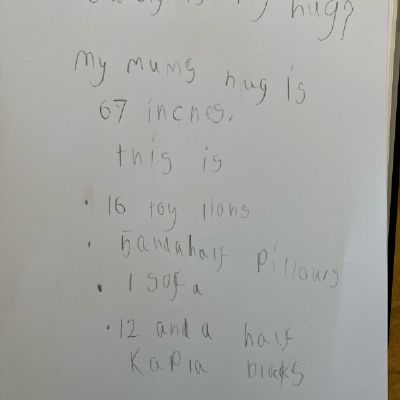 my hug?
my mums hug is
67 inches.
this is
• 16 toy lions
• 5 and a half pillows
• 1 sofa
• 12 and a half
Kapla blaks